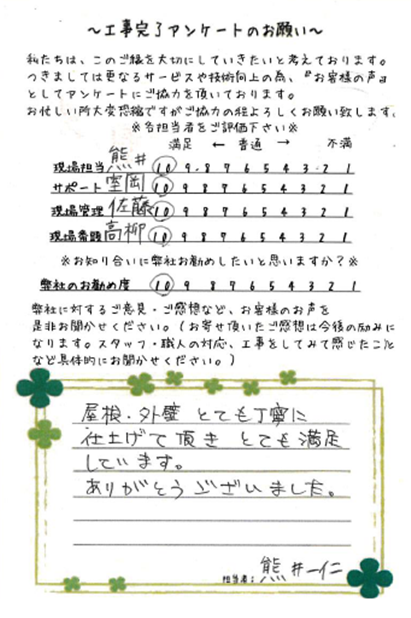 ～工事完了アンケートのお願い～
私たちは、このご縁を大切にしていきたいと考えております。
つきましては更なるサービスや技術向上の為、『お客様の声』
としてアンケートにご協力を頂いております。
お忙しい所大変恐縮ですがご協力の程よろしくお願い致します。
※各担当者をご評価下さい※
満足 ← 普通 → 不満
現場担当 熊井 10 9 8 7 6 5 4 3 2 1
サポート 室岡 10 9 8 7 6 5 4 3 2 1
現場管理 佐藤 10 9 8 7 6 5 4 3 2 1
現場番頭 高柳 10 9 8 7 6 5 4 3 2 1
※お知り合いに弊社お勧めしたいと思いますか？※
弊社のお勧め度 10 9 8 7 6 5 4 3 2 1
弊社に対するご意見・ご感想など、お客様のお声を
是非お聞かせください。（お寄せ頂いたご感想は今後の励みに
なります。スタッフ・職人の対応、工事をしてみて感じたこと
など具体的にお聞かせください。）
屋根・外壁 とても丁寧に
仕上げて頂き とても満足
しています。
ありがとうございました。
担当者： 熊井一仁